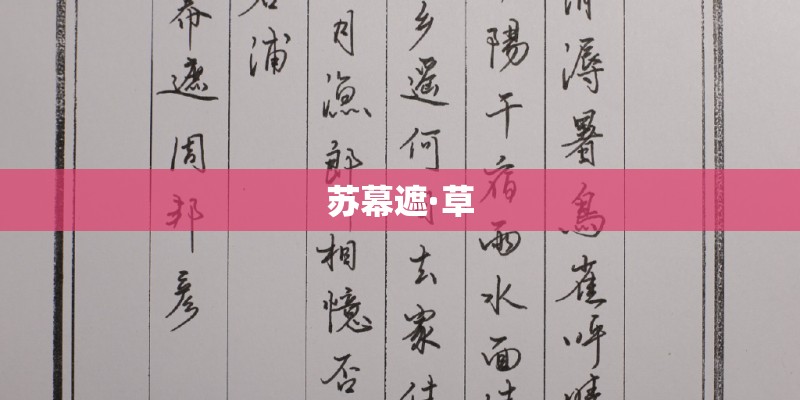 苏幕遮·草
溽暑鳥雀呼晴
陽干宿雨水面
乡遥何日去家住
月漁郎相憶否
浦
遮周邦彦